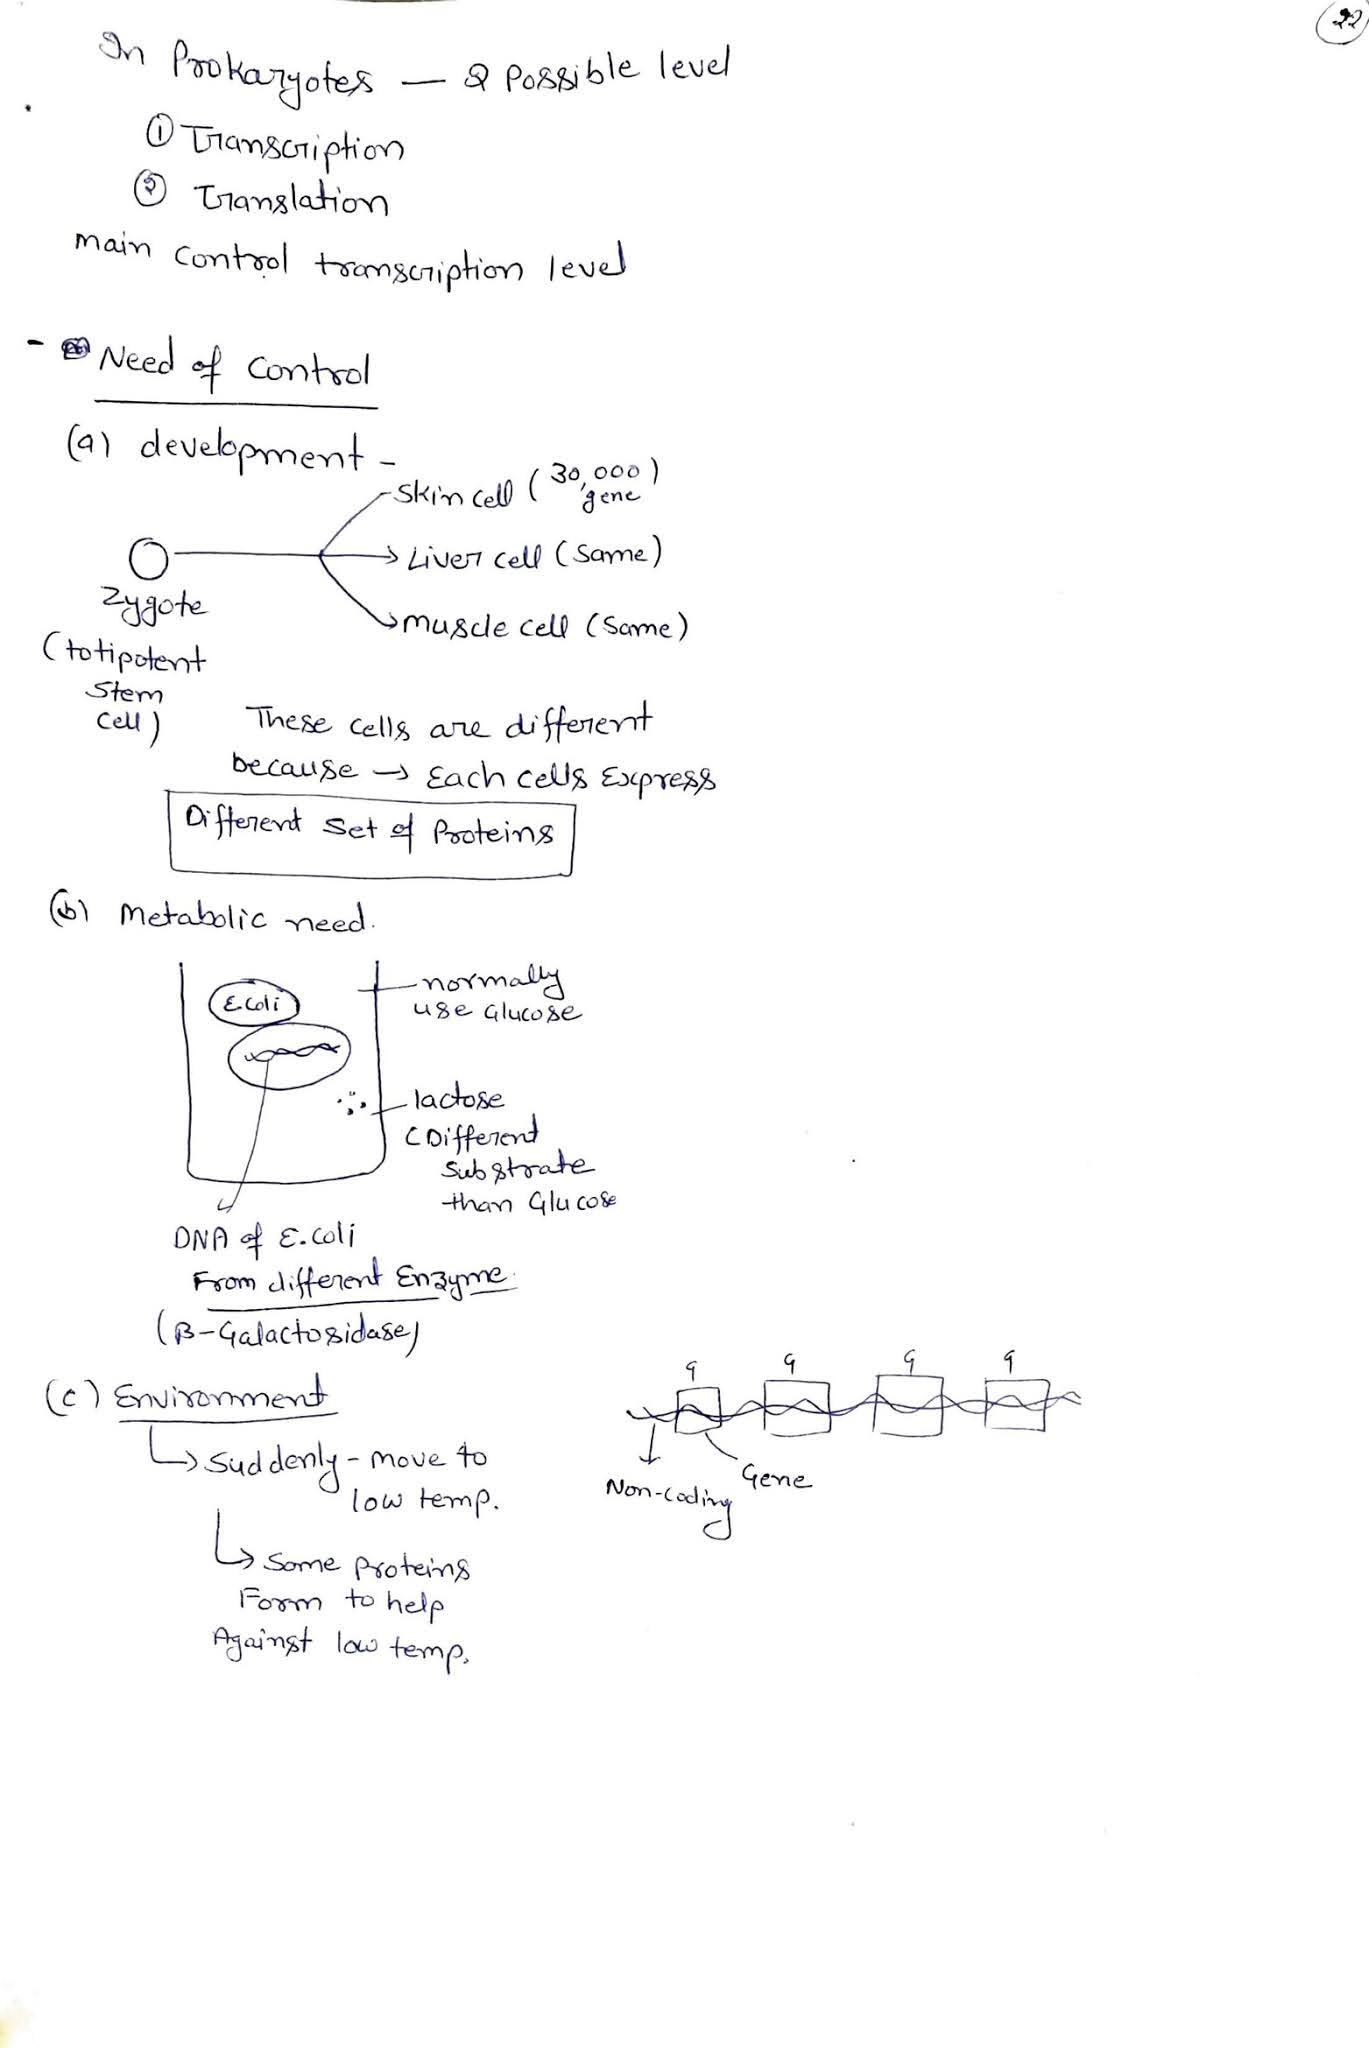 22
In Prokaryotes — 2 Possible level
① Transcription
② Translation
main control transcription level
- Need of control
(a) development -
Skin cell (30,000 gene)
Liver cell (Same)
muscle cell (Same)
Zygote
(totipotent
Stem
Cell)
These cells are different
because → Each cells Express
Different Set of Proteins
(b) Metabolic need.
E.Coli
normally
use Glucose
lactose
(Different
Substrate
than Glucose
DNA of E.coli
From different Enzyme.
(β-Galactosidase)
(c) Environment
↳ Suddenly - move to
low temp.
↳ Some Proteins
Form to help
Against low temp.
G G G G
Non-coding
Gene